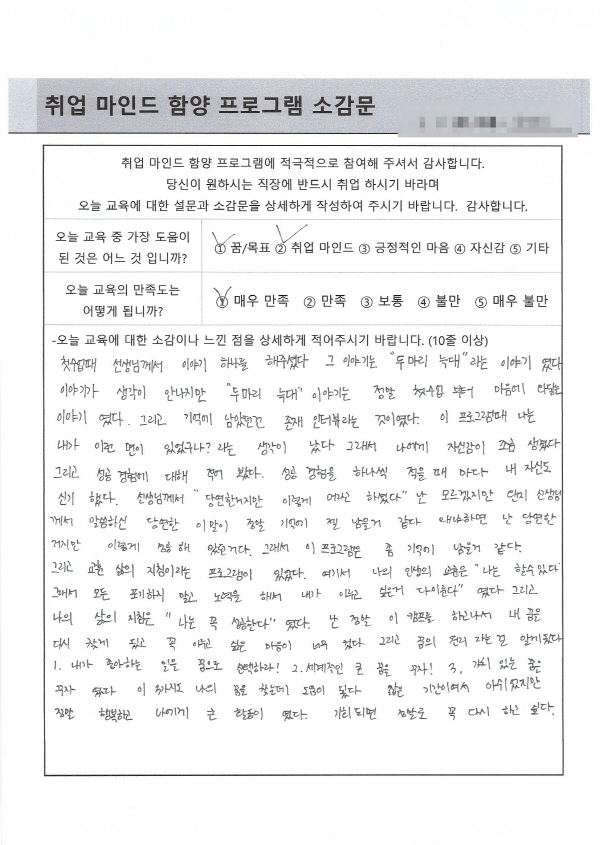 취업 마인드 함양 프로그램 소감문
취업 마인드 함양 프로그램에 적극적으로 참여해 주셔서 감사합니다.
당신이 원하시는 직장에 반드시 취업 하시기 바라며
오늘 교육에 대한 설문과 소감문을 상세하게 작성하여 주시기 바랍니다. 감사합니다.
오늘 교육 중 가장 도움이
된 것은 어느 것 입니까?
① 꿈/목표 ② 취업 마인드 ③ 긍정적인 마음 ④ 자신감 ⑤ 기타
오늘 교육의 만족도는
어떻게 됩니까?
① 매우 만족 ② 만족 ③ 보통 ④ 불만 ⑤ 매우 불만
-오늘 교육에 대한 소감이나 느낀 점을 상세하게 적어주시기 바랍니다. (10줄 이상)
첫수업때 선생님께서 이야기 하나를 해주셨다 그 이야기는 "두마리 늑대"라는 이야기 였다
이야기가 생각이 안나지만 "두마리 늑대" 이야기는 정말 첫수업 부터 마음에 와닿는
이야기 였다. 그리고 기억에 남았던건 존재 인터뷰라는 것이였다. 이 프로그램때 나는
내가 이런 면이 있었구나? 라는 생각이 났다 그래서 나에게 자신감이 조금 생겼다
그리고 성공 경험에 대해 적어 봤다. 성공 경험을 하나씩 적을 때 마다 내 자신도
신기 했다. 선생님께서 " 당연한거지만 이렇게 어라고 하셨다" 난 모르겠지만 선생님
께서 말씀하신 당연한 이말이 정말 기억에 젤 남을거 같다 왜냐하면 난 당연한
거지만 이렇게 성공 해 있는거다. 그래서 이 프로그램은 좀 기억에 남을거 같다.
그리고 교훈 삶의 지침이라는 프로그램이 있었다. 여기서 나의 인생의 교훈은 "나는 할수있다
그래서 모든 포기하지 말고 노력을 해서 내가 이루고 싶은거 다이룬다" 였다 그리고
나의 삶의 지침은 "나는 꼭 성공한다" 였다. 난 정말 이 캠프를 하고나서 내 꿈을
다시 찾게 됬고 꼭 이루고 싶은 마음이 너무 컸다 그리고 꿈의 원리 라는건 알게됬다
1. 내가 좋아하는 일을 꿈으로 선택하라! 2. 세계적인 큰 꿈을 꾸자! 3. 가치 있는 꿈을
꾸자 였다 이 3가지도 나의 꿈을 찾는데 도움이 됬다 짧은 기간이여서 아쉬웠지만
정말 행복하고 나에게 큰 활동이 였다. 기회되면 정말로 꼭 다시 하고 싶다.